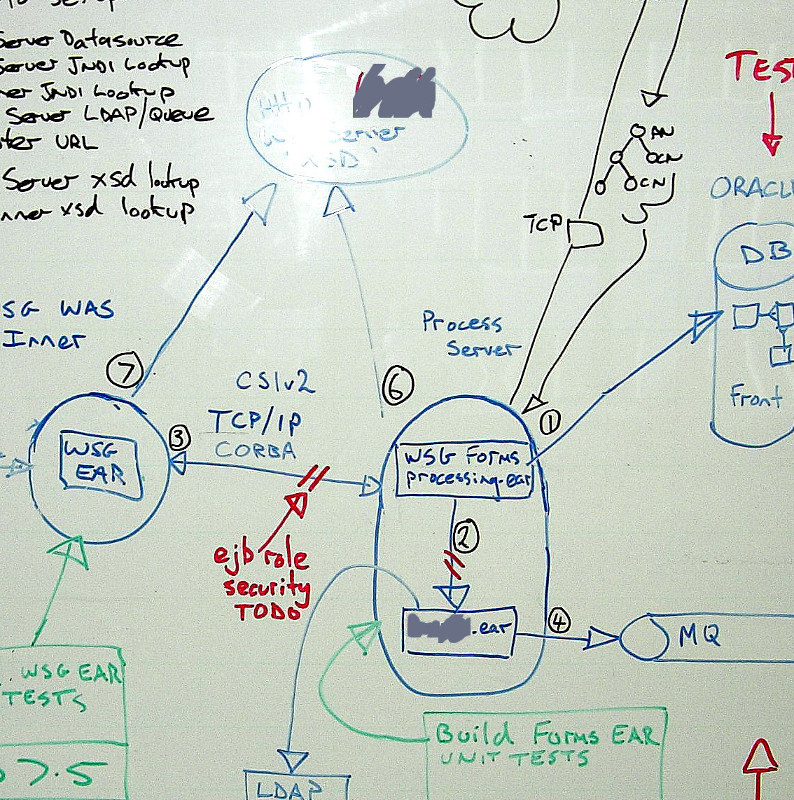 Server Datasource
Server JNDI Lookup
JNDI Lookup
Server LDAP/Queue
URL
Server xsd lookup
xsd lookup
Server
XSD
TEST
AN
CN
CN
TCP
ORACLE
DB
Front
WSG WAS
Inner
Process
Server
7
6
1
CSIv2
TCP/IP
CORBA
3
WSG
EAR
WSG Forms
processing.ear
2
ejb role
security
TODO
.ear
4
MQ
WSG EAR
TESTS
7.5
Build Forms EAR
UNIT TESTS
LDAP